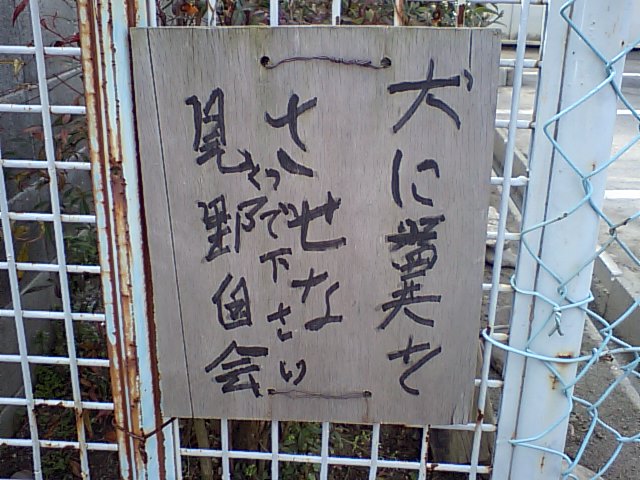 犬に糞を
させな
いで下さい
見野自会